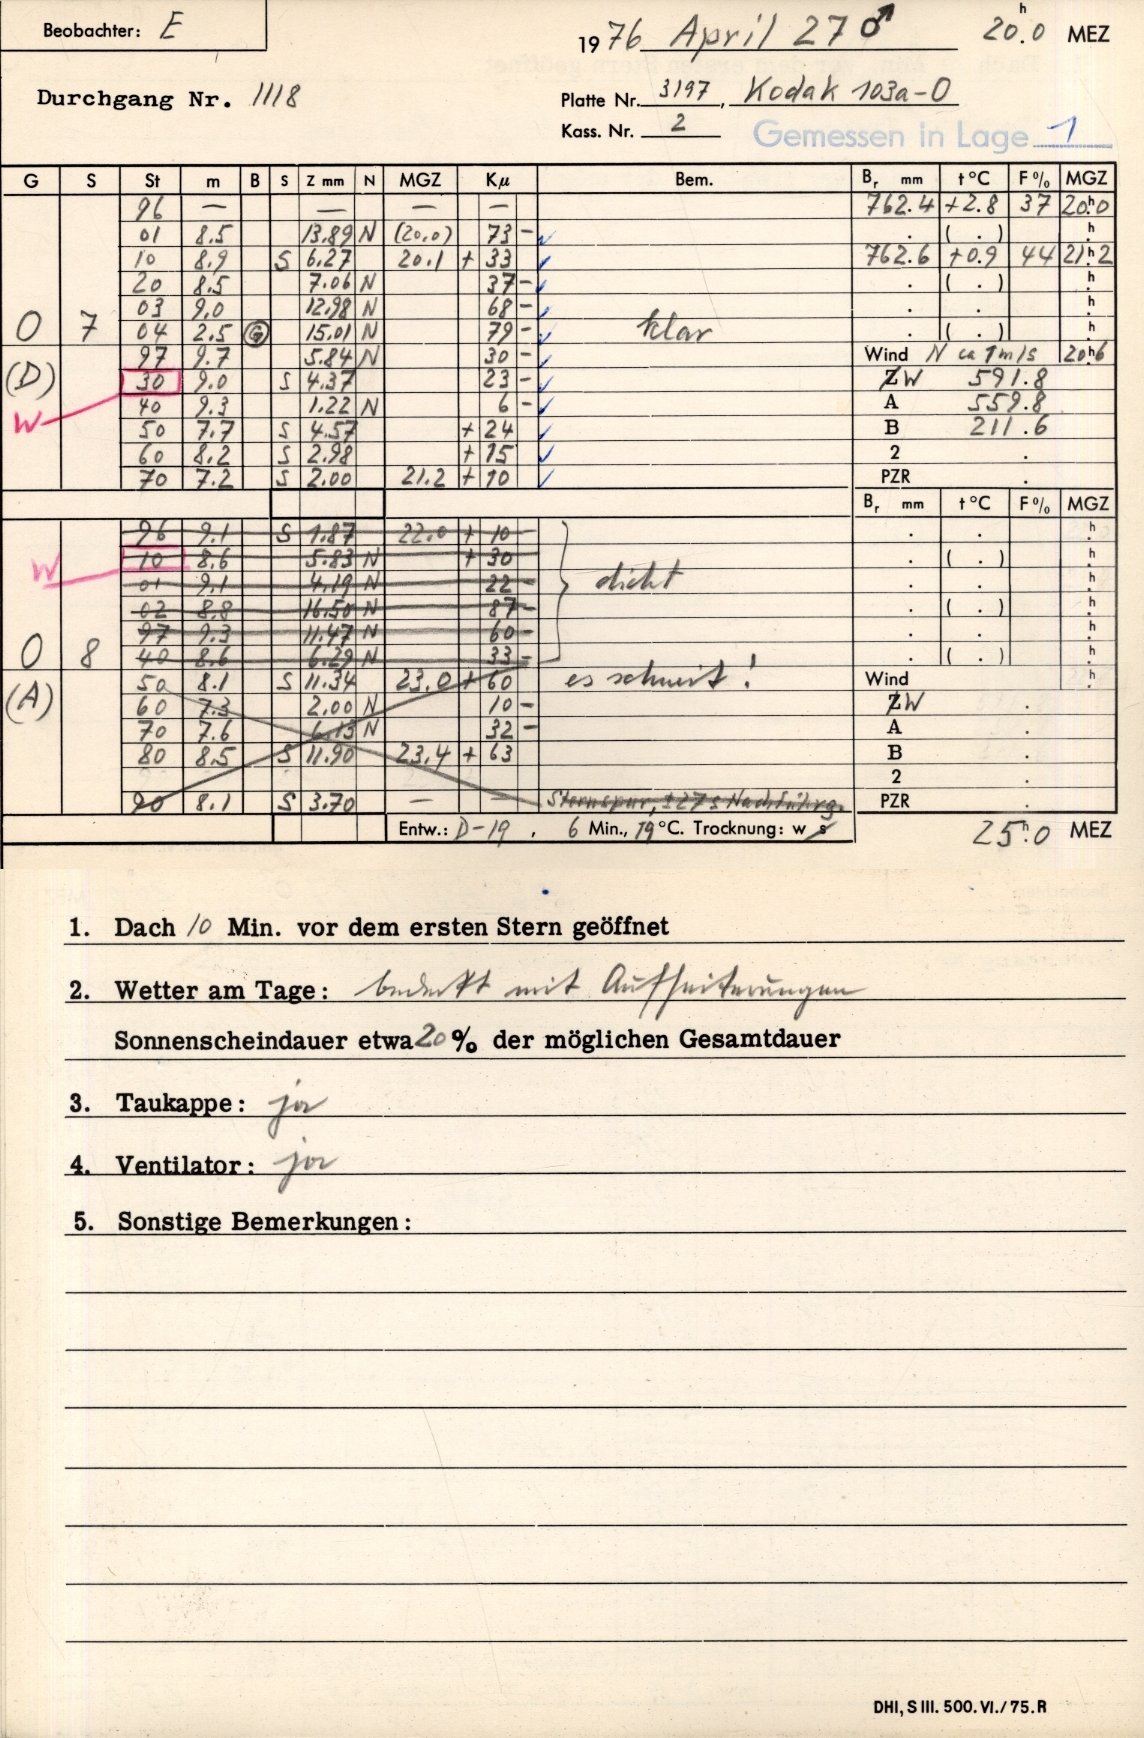 Beobachter: E
1976 April 27 ♂ 20.ʰ0 MEZ
Durchgang Nr. 1118
Platte Nr. 3197, Kodak 103a-O
Kass. Nr. 2
Gemessen in Lage 1
G S St m B S Z mm N MGZ Kµ Bem. Bᵣ mm t °C F% MGZ
96 — — — — 762.4 +2.8 37 20ʰ0
01 8.5 13.89 N (20.0) 73 - ✓ . ( . ) ʰ.
10 8.9 S 6.27 20.1 + 33 ✓ 762.6 +0.9 44 21ʰ2
20 8.5 7.06 N 37 - ✓ . ( . ) ʰ.
03 9.0 12.98 N 68 - ✓ . . ʰ.
O 7 04 2.5 G 15.01 N 79 - ✓ klar . ( . ) ʰ.
97 9.7 5.84 N 30 - ✓ Wind N ca 1 m/s 20ʰ6
(D) 30 9.0 S 4.37 23 - ✓ ZW 591.8
W 40 9.3 1.22 N 6 - ✓ A 559.8
50 7.7 S 4.57 + 24 ✓ B 211.6
60 8.2 S 2.98 + 15 ✓ 2 .
70 7.2 S 2.00 21.2 + 10 ✓ PZR .
Bᵣ mm t °C F% MGZ
96 9.1 S 1.87 22.0 + 10 . . ʰ.
W 10 8.6 5.83 N + 30 . ( . ) ʰ.
01 9.1 4.19 N 22 - dicht . . ʰ.
02 8.8 16.50 N 87 - . ( . ) ʰ.
97 9.3 11.47 N 60 - . . ʰ.
O 8 40 8.6 6.29 N 33 - . ( . ) ʰ.
(A) 50 8.1 S 11.34 23.0 + 60 es schneit! Wind ʰ.
60 7.3 2.00 N 10 - ZW .
70 7.6 6.13 N 32 - A .
80 8.5 S 11.90 23.4 + 63 B .
2 .
90 8.1 S 3.70 — — Sternspur, ±27s Nachführg. PZR .
Entw.: D-19, 6 Min., 19 °C. Trocknung: w s
25.ʰ0 MEZ
1. Dach 10 Min. vor dem ersten Stern geöffnet
2. Wetter am Tage: bedeckt mit Aufheiterungen
Sonnenscheindauer etwa 20 % der möglichen Gesamtdauer
3. Taukappe: ja
4. Ventilator: ja
5. Sonstige Bemerkungen:
DHI, S III. 500. VI./75. R